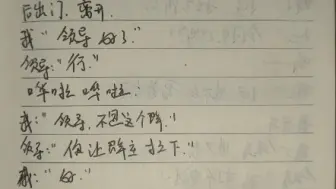 后出门，离开。
我：“领导 好了。”
领导：“行。”
哗啦 哗啦。
我：“领导，不是这个阵。”
领导：“你让阵立 拉下。”
我：“好。”